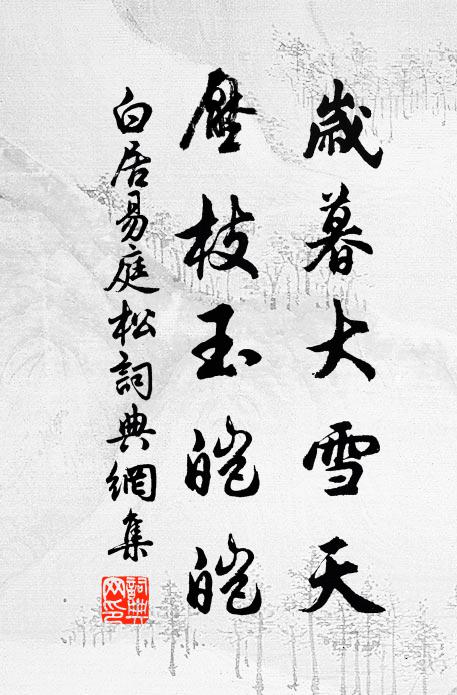 歲暮大雪天
壓枝玉皚皚
白居易庭松詞典網集
詞典網印